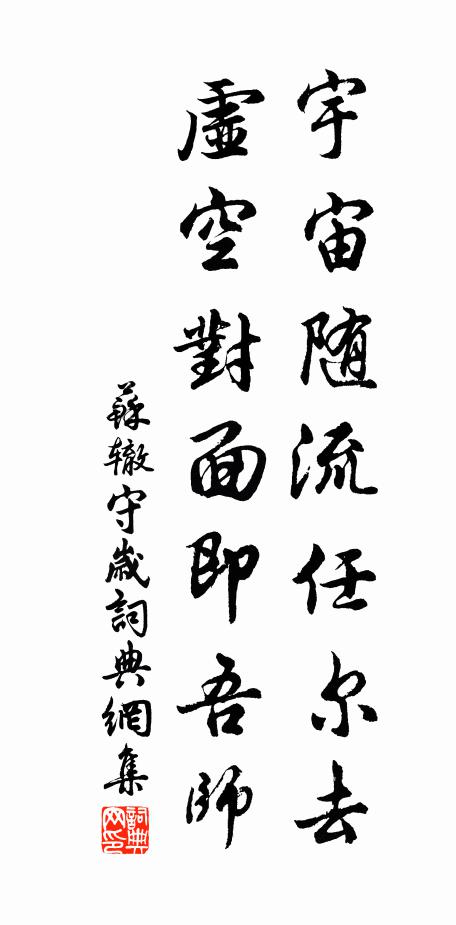 宇宙随流任尔去
虛空對面即吾師
蘇辙守歲詞典網集
詞典网印